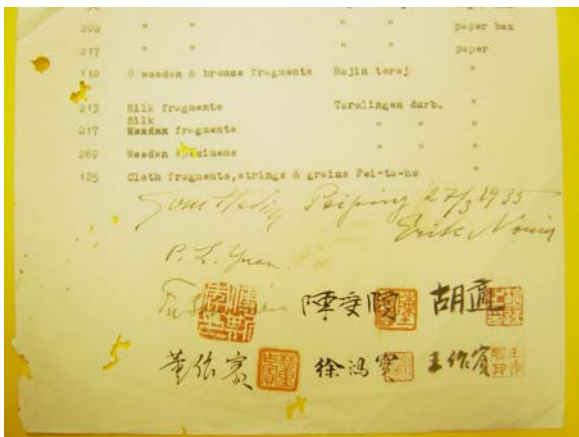 209 " " " " paper box
217 " " " " paper
110 8 wooden & bronze fragments Bajin toroj "
213 Silk fragments Taralingen durb. "
Silk
217 fragments " " "
269 Wooden specimens " "
185 Cloth fragments, strings & grains Pei-ta-ho "
Peiping 27/3 1935
Erik Norin
P. L. Yuan.
陳受頤 胡適
董作賓 徐鴻寶 王作賓